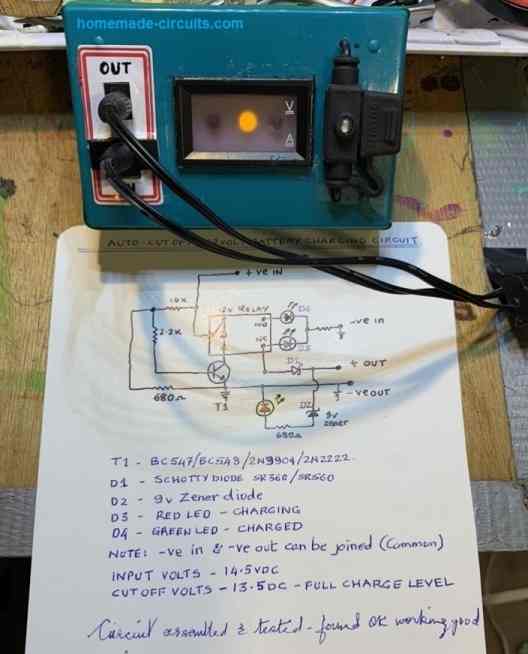 homemade-circuits.com
OUT
V
A
AUTO-CUT OFF 12 VOLT BATTERY CHARGING CIRCUIT
+ve IN
10K
12V RELAY
D4
N/O
-ve in
2.2K
N/C
D3
D1
+ OUT
-ve OUT
680Ω
T1
D2
9V
zener
680Ω
T1 - BC547/BC548/2N3904/2N2222
D1 - SCHOTTY DIODE SR360/SR560
D2 - 9v Zener diode
D3 - RED LED - CHARGING
D4 - GREEN LED - CHARGED
NOTE: -ve in & -ve out can be joined (Common)
INPUT VOLTS - 14.5VDC
CUT OFF VOLTS - 13.5DC - FULL CHARGE LEVEL
Circuit assembled & tested - found OK working good